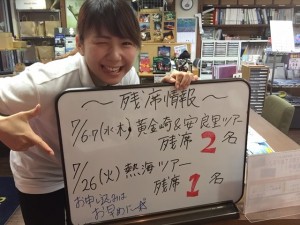 ～残席情報～
7/6.7(水木)黄金崎&安良里ツアー
残席 2名
7/26(火)熱海ツアー
残席 1名
お申し込みは
お早めに